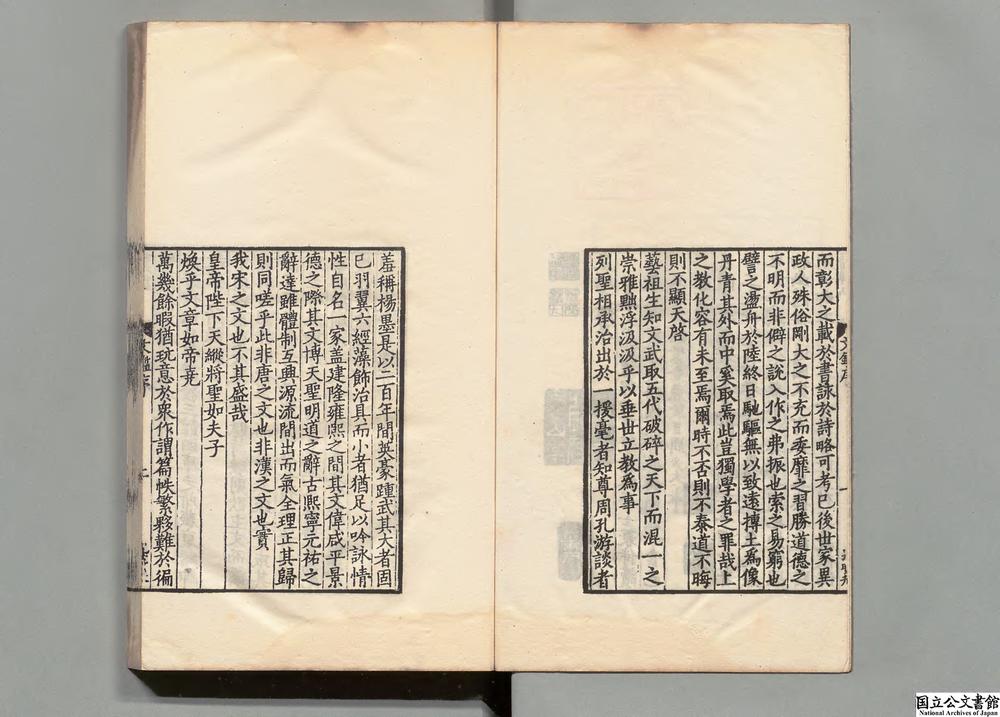 而彰大之載於書詠於詩略可考已後世家異
政人殊俗剛大之不充而委靡之習勝道德之
不明而非僻之説入作之弗振也索之易窮也
譬之盪舟於陸終日馳驅無以致遠摶土爲像
丹青其外而中奚取焉此豈獨學者之罪哉上
之教化容有未至焉爾時不否則不泰道不晦
則不顯天啓
藝祖生知文武取五代破碎之天下而混一之
崇雅黜浮汲汲乎以垂世立教爲事
列聖相承治出於一援毫者知尊周孔游談者
羞稱楊墨是以二百年間英豪踵武其大者固
已羽翼六經藻飾治具而小者猶足以吟詠情
性自名一家盖建隆雍熙之間其文偉咸平景
德之際其文博天聖明道之辭古熙寧元祐之
辭達雖體制互興源流間出而氣全理正其歸
則同嗟乎此非唐之文也非漢之文也實
我宋之文也不其盛哉
皇帝陛下天縱將聖如夫子
煥乎文章如帝堯
萬幾餘暇猶玩意於衆作謂篇帙繁夥難於徧
文鑑序
国立公文書館
National Archives of Japan